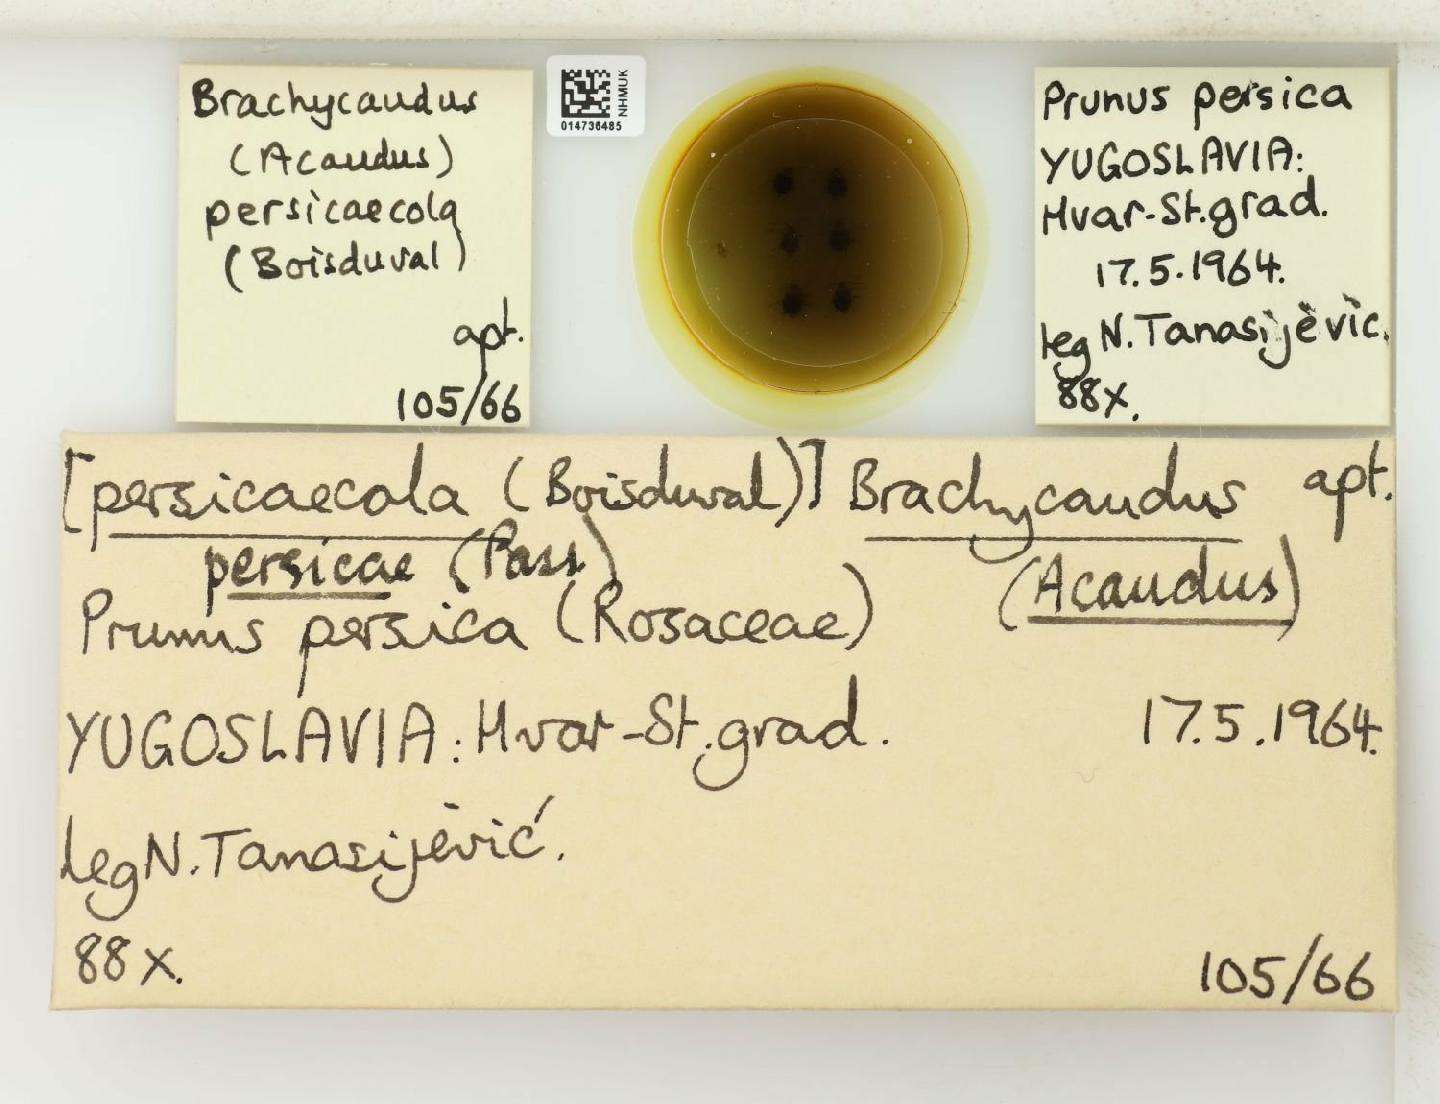 Brachycaudus
(Acaudus)
persicaecola
(Boisduval)
apt.
105/66
NHMUK
014736485
Prunus persica
YUGOSLAVIA:
Hvar-St.grad.
17.5.1964.
leg N. Tanasijević.
88x.
[persicaecola (Boisduval)] Brachycaudus apt.
persicae (Pass) (Acaudus)
Prunus persica (Rosaceae)
YUGOSLAVIA: Hvar-St.grad. 17.5.1964.
Leg N. Tanasijević.
88x. 105/66